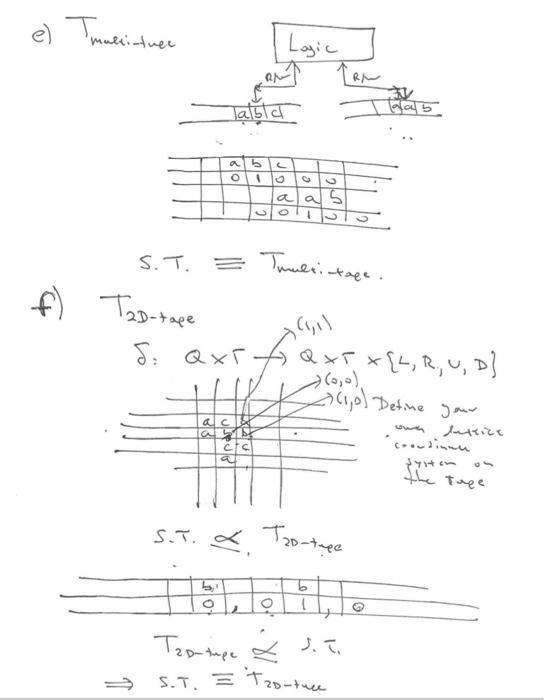 e) T multi-tape
Logic
R/W R/W
a b c a a b
..
a b c
0 1 0 0 0
a a b
0 0 1 0 0
S.T. ≡ T multi-tape.
f) T 2D-tape
(1,1)
δ: Q × Γ → Q × Γ × {L, R, U, D}
(0,0)
(1,0) Define your
own lattice
coordinate
system on
the Tape
a c
a b b
c c
a
S.T. ≤ T 2D-tape
b b
0 , 0 1 , 0
T 2D-tape ≤ S.T.
⇒ S.T. ≡ T 2D-tape